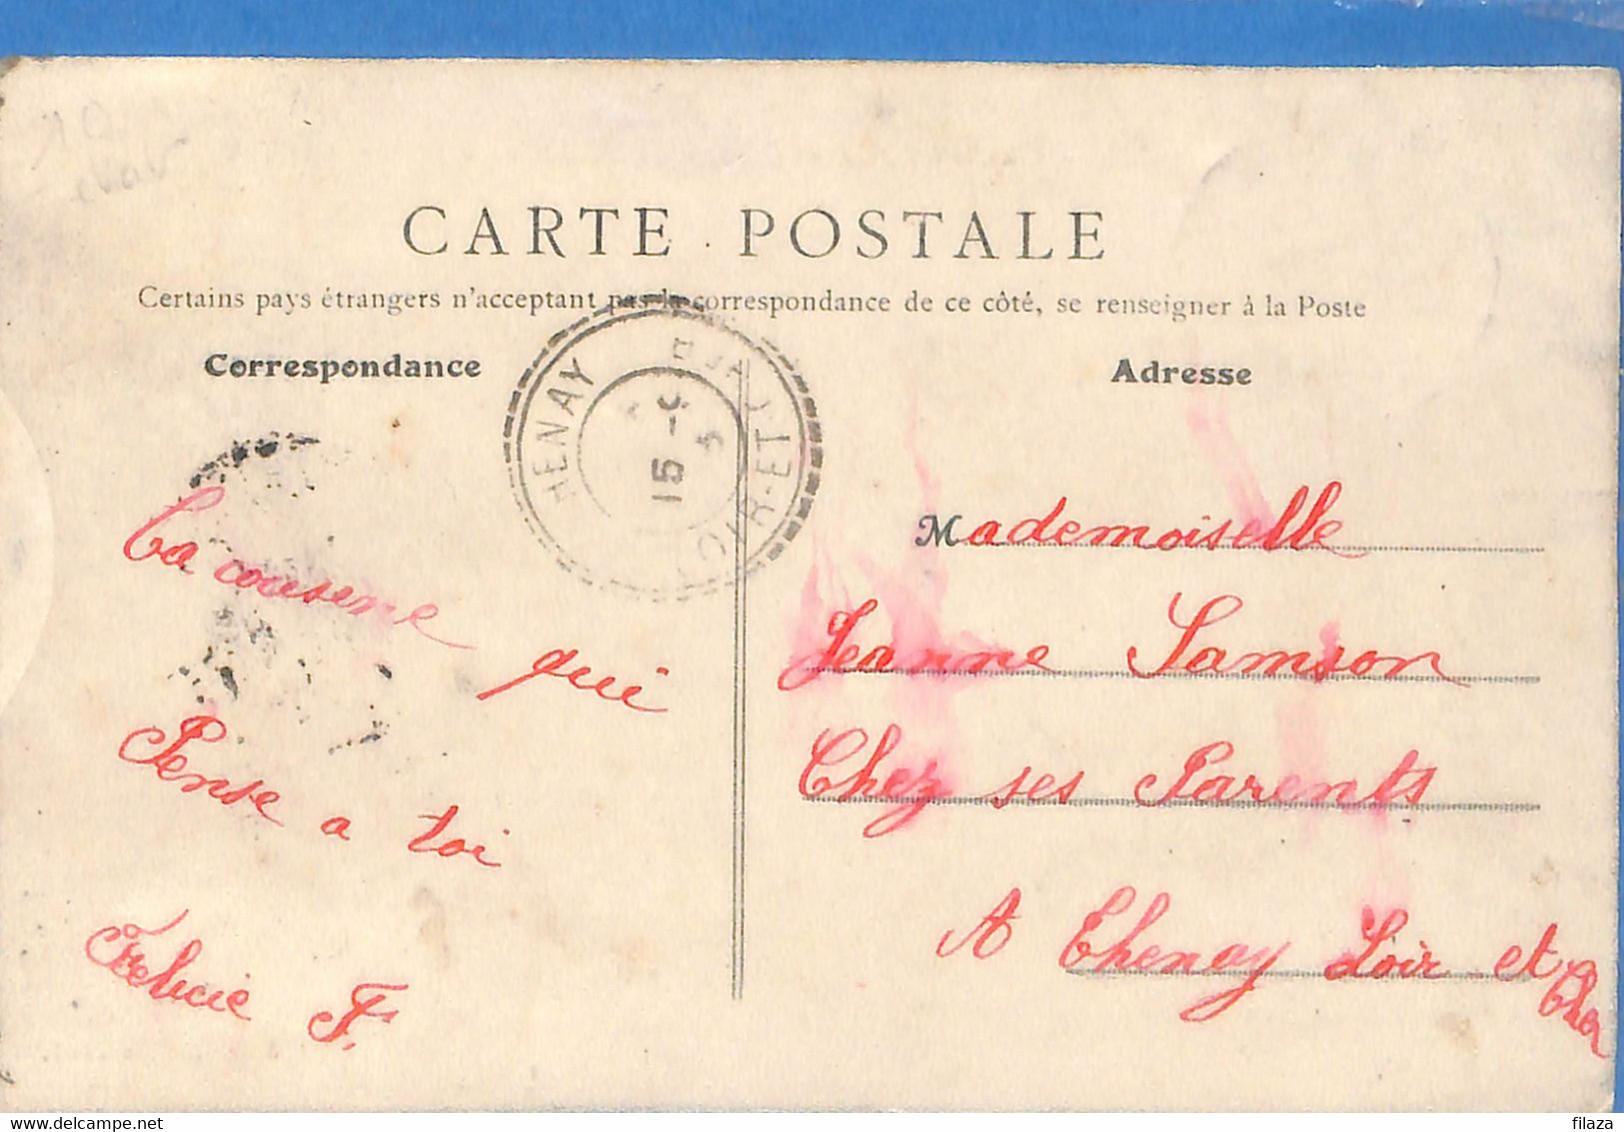 CARTE POSTALE
Certains pays étrangers n'acceptant pas la correspondance de ce côté, se renseigner à la Poste
Correspondance
Adresse
HENAY
LOIR-ET
15
Mademoiselle
Jeanne Samson
Chez ses Parents
A Thenay Loir et Cher
Ta cousine
qui
Pense a toi
Felicie F.
www.delcampe.net
filaza